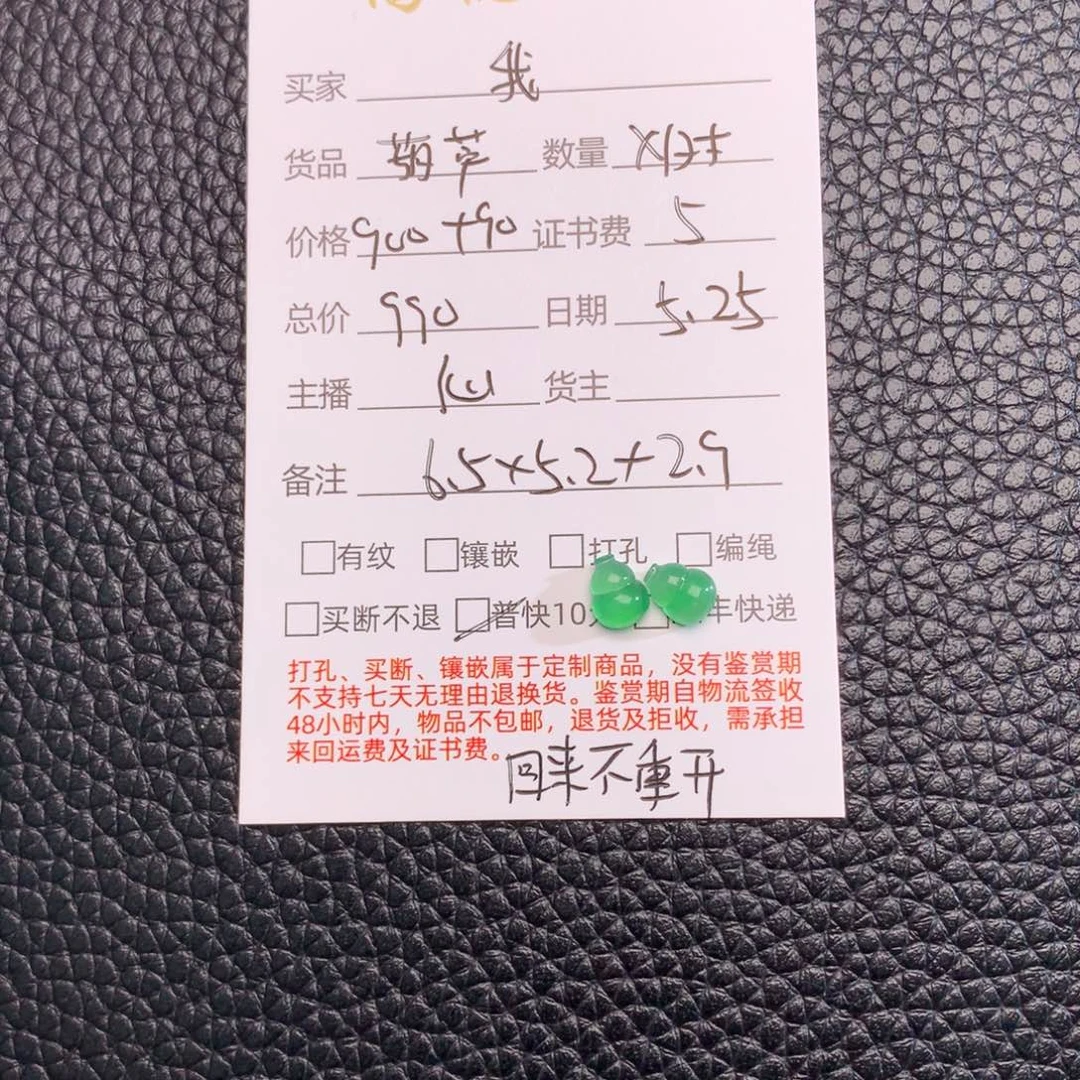 买家 我
货品 葫芦 数量 X1对
价格 900+90 证书费 5
总价 990 日期 5.25
主播 货主
备注 6.5×5.2+2.9
□有纹 □镶嵌 □打孔 □编绳
□买断不退 □普快10 快递
打孔、买断、镶嵌属于定制商品，没有鉴赏期
不支持七天无理由退换货。鉴赏期自物流签收
48小时内，物品不包邮，退货及拒收，需承担
来回运费及证书费。
回来不重开